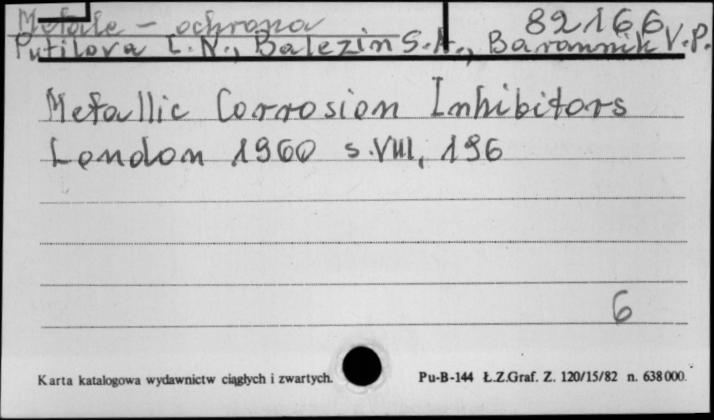 Metale - ochrona 82166
Putilova I. N., Balezin S.A., Barannik V.P.
Metallic Corrosion Inhibitors
London 1960 s.VIII, 196
6
Karta katalogowa wydawnictw ciągłych i zwartych. Pu-B-144 Ł.Z.Graf. Z. 120/15/82 n. 638000.